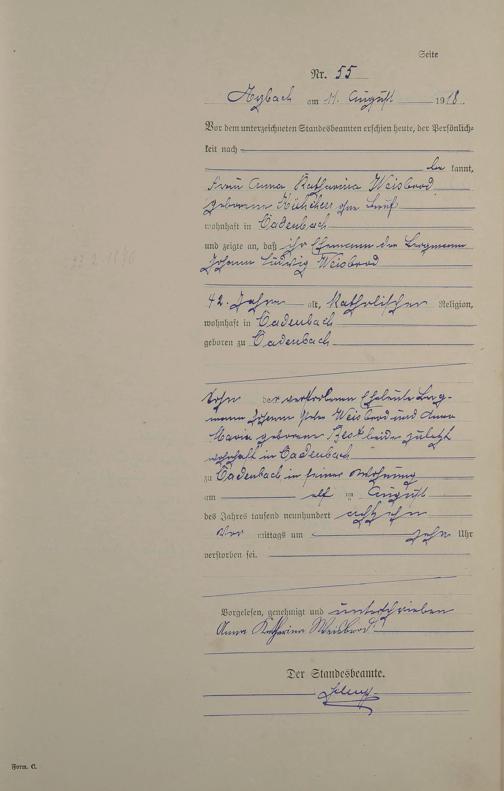 Seite
Nr. 55
Arzbach am 11. August 1918.
Vor dem unterzeichneten Standesbeamten erschien heute, der Persönlich-
keit nach
be kannt,
Frau Anna Katharina Weisbrod
geborene ohne Beruf
wohnhaft in Cadenbach
und zeigte an, daß ihr Ehemann der Bergmann
Johann Ludwig Weisbrod
42. Jahre alt, Katholischer Religion,
wohnhaft in Cadenbach
geboren zu Cadenbach
Sohn der verstorbenen Eheleute Berg-
mann Johann Peter Weisbrod und Anna
Maria geborene beide zuletzt
wohnhaft in Cadenbach
zu Cadenbach in seiner Wohnung
am elf ten August
des Jahres tausend neunhundert achtzehn
Vor mittags um zehn Uhr
verstorben sei.
Vorgelesen, genehmigt und unterschrieben
Anna Katharina Weisbrod
Der Standesbeamte.
Form. C.